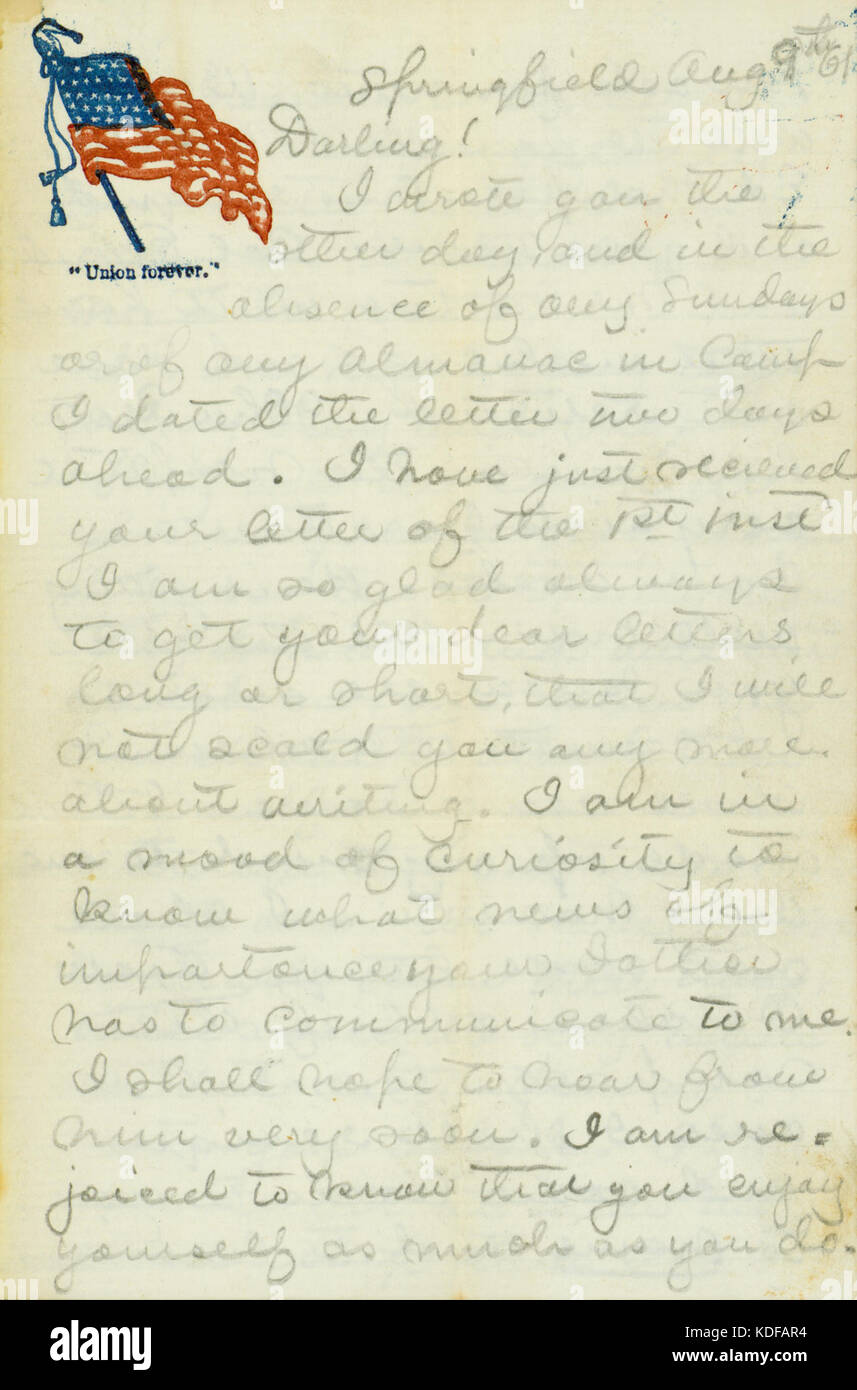 Springfield Aug 9th 61
Darling!
"Union forever."
I wrote you the
other day, and in the
absence of any Sundays
or of any almanac in Camp
I dated the letter two days
ahead. I have just recieved
your letter of the 1st inst
I am so glad always
to get your dear letters
long or short, that I will
not scald you any more
about writing. I am in
a mood of curiosity to
know what news of
importance your Father
has to communicate to me.
I shall hope to hear from
him very soon. I am re=
joiced to know that you enjoy
yourself as much as you do.
alamy
alamy stock photo
KDFAR4
www.alamy.com